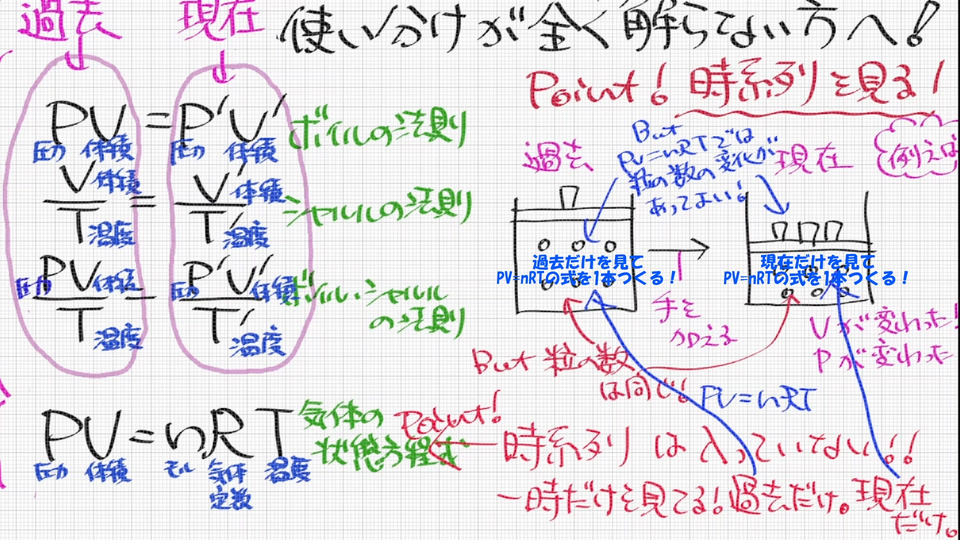 過去 現在 使い分けが全く解らてない方へ!
Point! 時系列を見る!
PV=P'V' ボイルの法則
圧力 体積 圧力 体積
V/T=V'/T' シャルルの法則
体積 体積
温度 温度
PV/T=P'V'/T' ボイル・シャルルの法則
圧力 体積 圧力 体積
温度 温度
PV=nRT 気体の状態方程式
圧力 体積 モル 気体定数 温度
過去 現在 例えば
But
PV=nRTでは
粒の数の変化が
あってよい!
過去だけを見て
PV=nRTの式を1本つくる!
現在だけを見て
PV=nRTの式を1本つくる!
チを
加える
Vが変わった!
Pが変わった
But 粒の数
は同じ!
PV=nRT
Point!
時系列は入っていない!!
一時だけを見てる!過去だけ。現在
だけ。